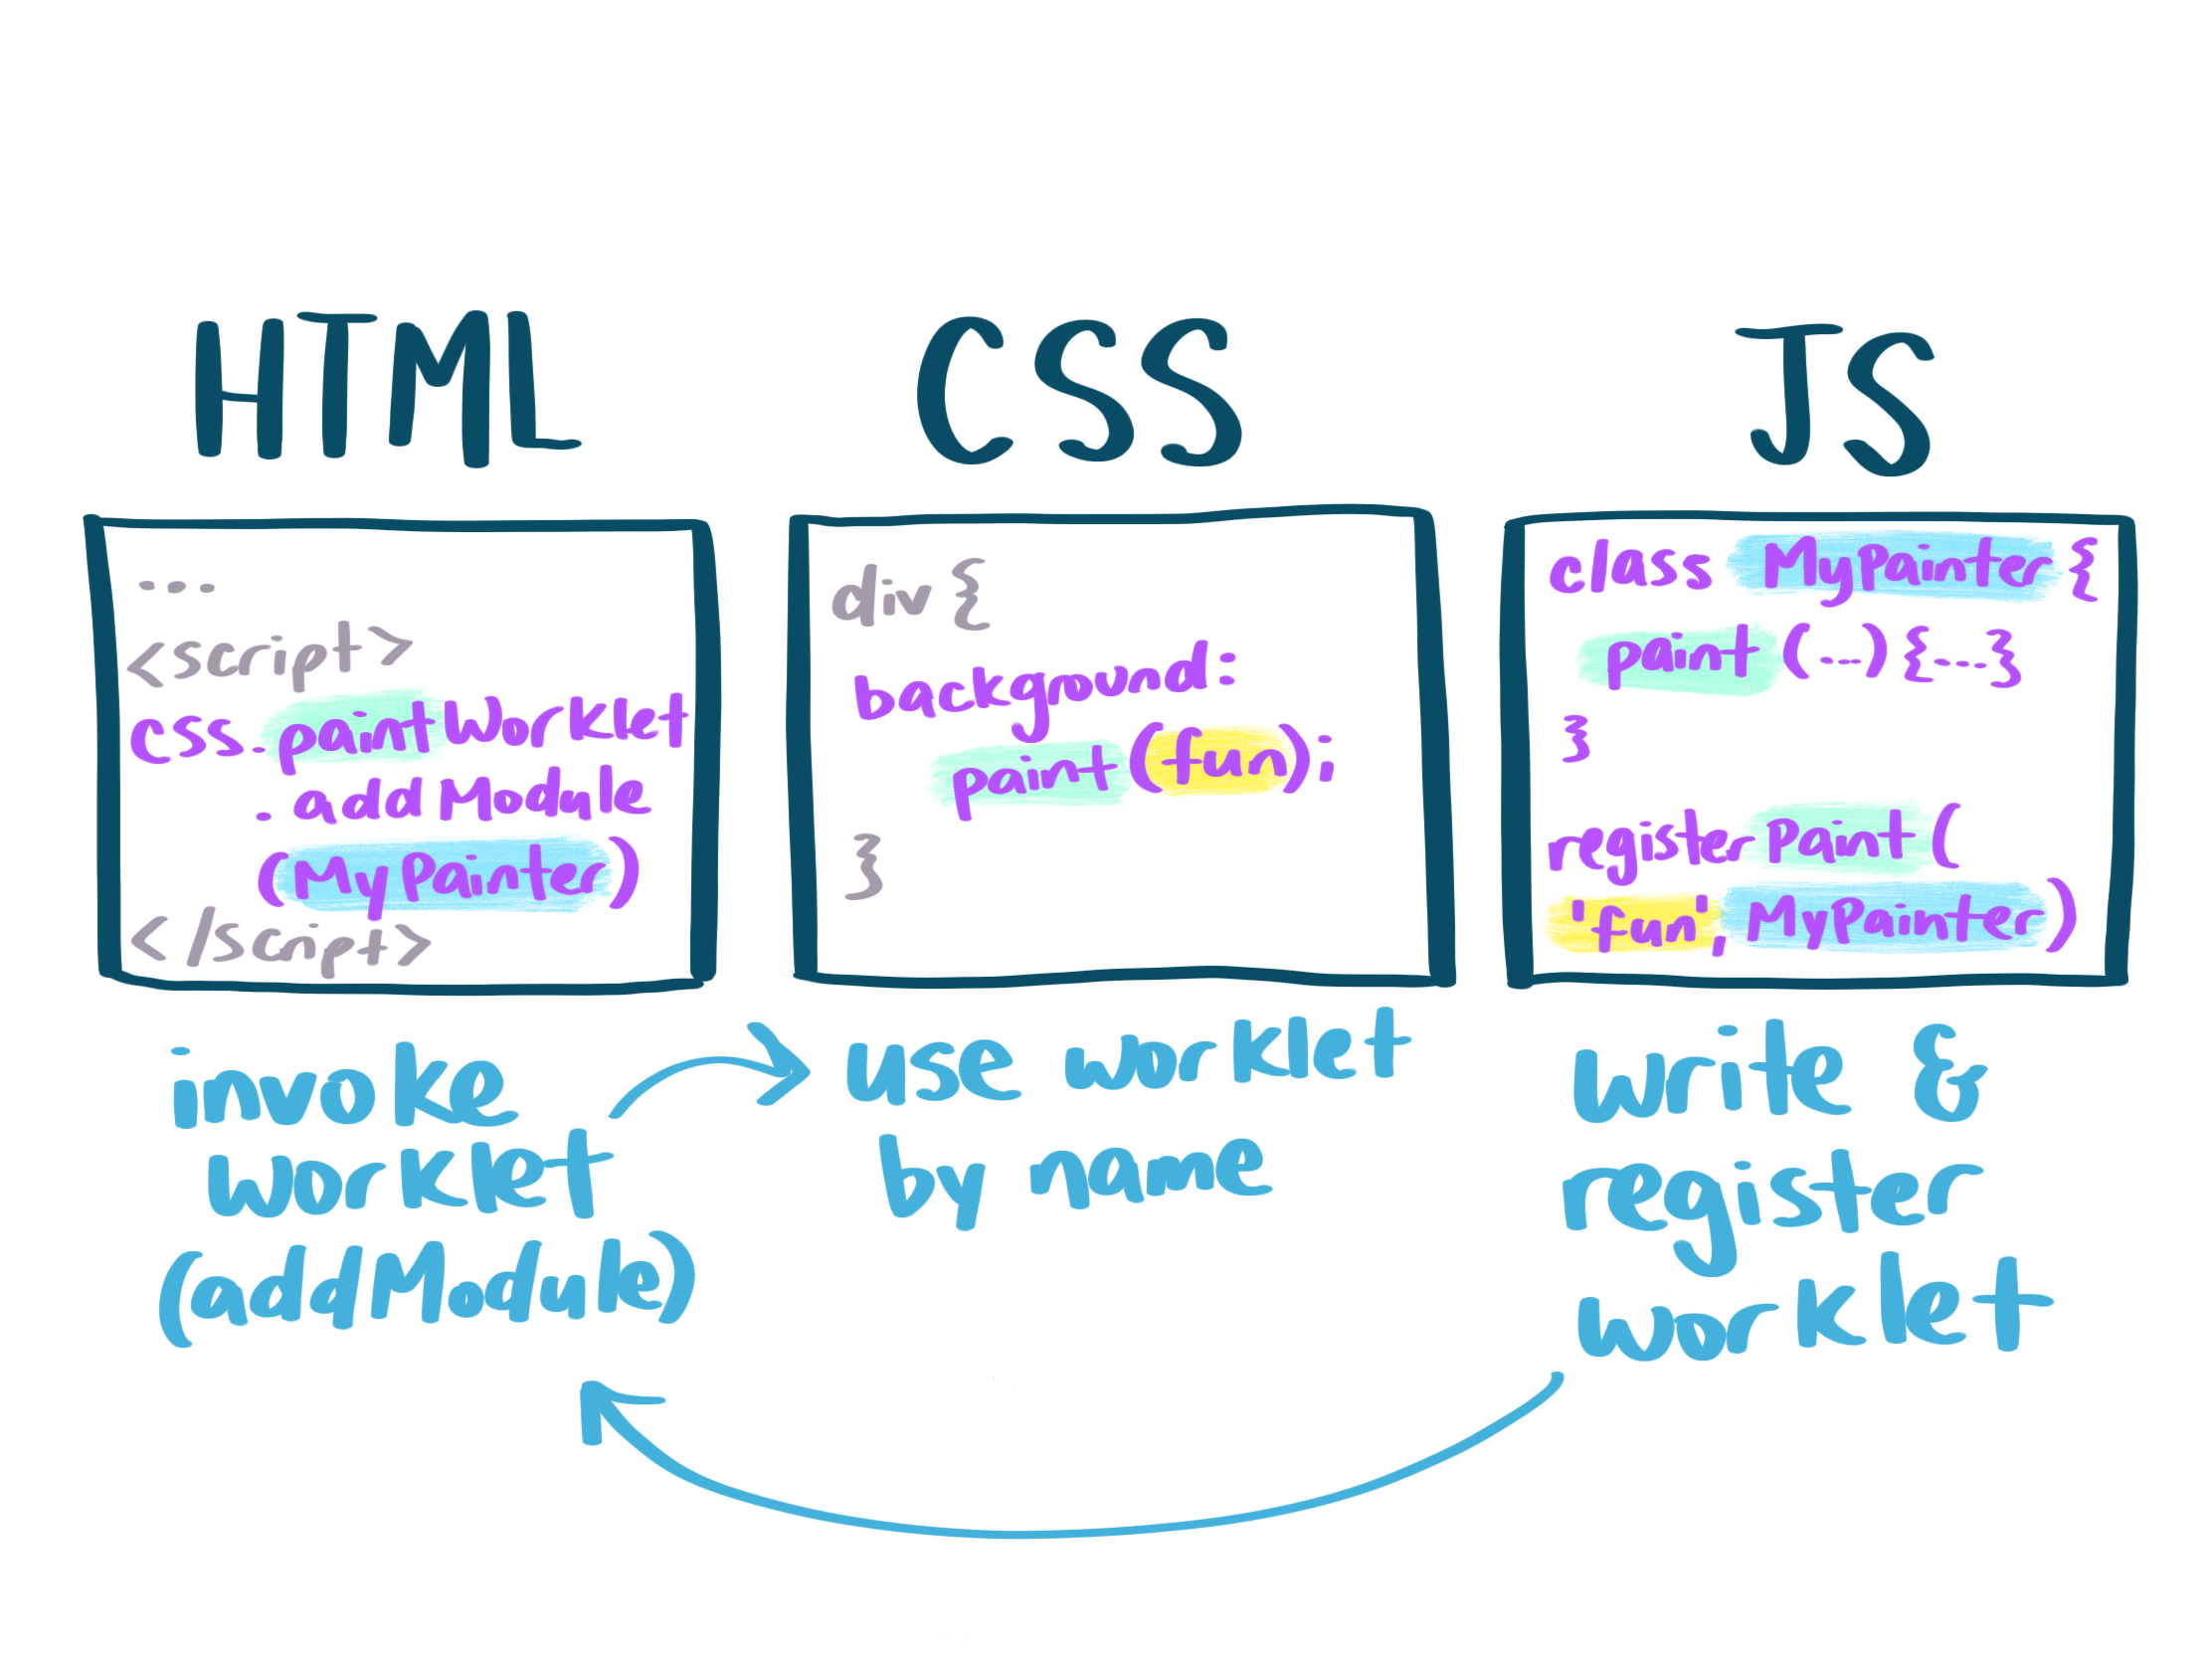 HTML
...
<script>
css.paintWorklet
.addModule
(MyPainter)
</script>
invoke
worklet
(addModule)
CSS
div{
background:
paint(fun);
}
use worklet
by name
JS
class MyPainter{
paint(...){...}
}
registerPaint(
'fun', MyPainter)
write &
register
worklet